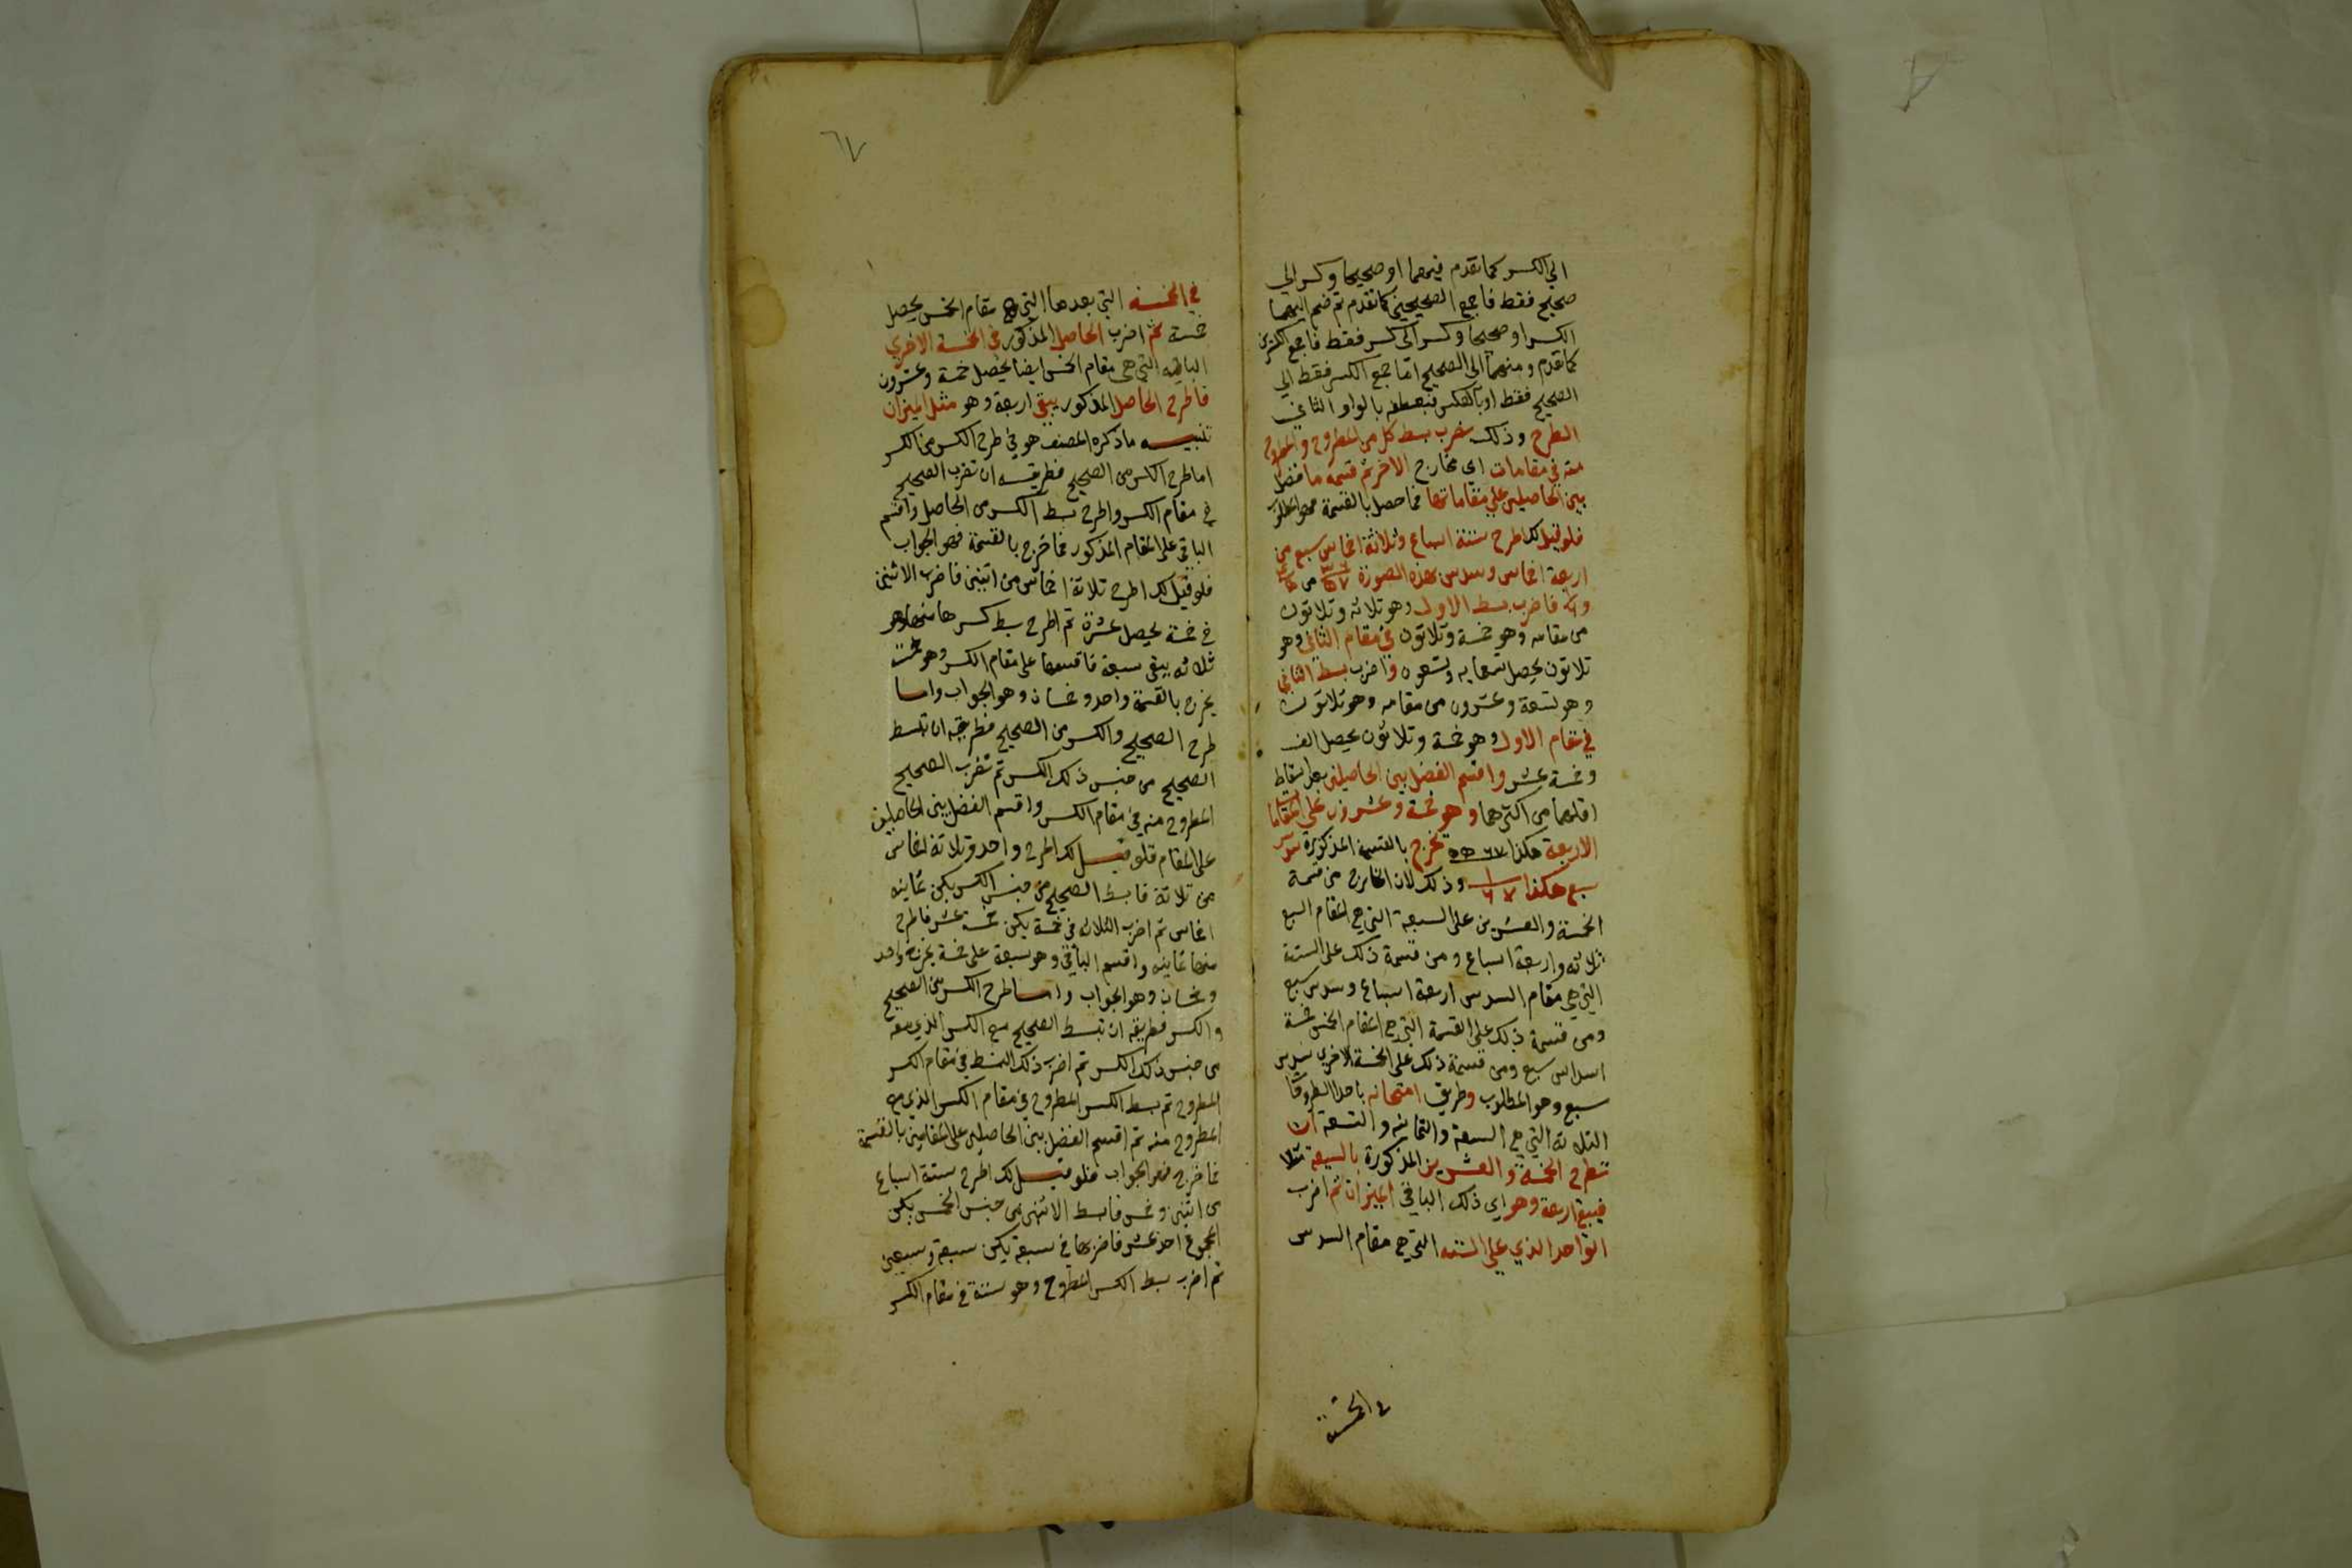 الي الكسر كما تقدم فيهما او صحيحا وكسر الي
صحيح فقط فاجمع الصحيحين كما تقدم ثم ضم اليهما
الكسر او صحيحا وكسر الي كسر فقط فاجمع الكسرين
كما تقدم ومنهما الي الصحيح اما جمع الكسر فقط الي
الصحيح فقط او بالعكس فبعطفه بالواو الثاني
الطرح وذلك بضرب بسط كل من المطروح والمطروح
منه في مقامات اي مخارج الاخر ثم قسمة ما فضل
بين الحاصلين علي مقاماتها فما حصل بالقسمة فهو المطلوب
فلو قيل لك اطرح ستة اسباع وثلاثة اخماس سبع من
اربعة اخماس وسدس بهذه الصورة
فاضرب بسط الاول وهو ثلاثه وثلاثون
من مقامه وهو خمسة وثلاثون في مقام الثاني وهو
ثلاثون يحصل تسعمايه وتسعون واضرب بسط الثاني
وهو تسعة وعشرون من مقامه وهو ثلاثون
في مقام الاول وهو خمسة وثلاثون يحصل الف
وخمسة عشر واقسم الفضل بين الحاصلين بعد اسقاط
اقلهما من اكثرهما وهو خمسة وعشرون علي المقامات
الاربعة هكذا ٥٥٦٧ تخرج بالقسمة المذكورة سدس
سبع هكذا ١ ٦٧ وذلك لان الخارج من قسمة
الخمسة والعشرين علي السبعة التي هي مقام السبع
ثلاثه واربعة اسباع ومن قسمة ذلك علي الستة
التي هي مقام السدس اربعة اسباع وسدس سبع
ومن قسمة ذلك علي القسمة التي هي مقام الخمس خمسة
اسداس سبع ومن قسمة ذلك علي الخمسة الاخري سدس
سبع وهو المطلوب وطريق امتحانه باحد الطروحات
الثلاثه التي هي السبعة والثمانيه والتسعة ان
تطرح الخمسة والعشرين المذكورة بالسبعة مثلا
فيبقي اربعة وهو اي ذلك الباقي الميزان ثم اضرب
الواحد الذي علي الستة التي هي مقام السدس
في الخمسة
٦٧
في الخمسه التي بعدها التي هي مقام الخمس يحصل
خمسة ثم اضرب الحاصل المذكور في الخمسة الاخري
الباقيه التي هي مقام الخمس ايضا يحصل خمسة وعشرون
فاطرح الحاصل المذكور يبقي اربعة وهو مثل الميزان
تنبيه ما ذكره المصنف هو في طرح الكسر من الكسر
اما طرح الكسر من الصحيح فطريقه ان تضرب الصحيح
في مقام الكسر واطرح بسط الكسر من الحاصل واقسم
الباقي علي المقام المذكور فما خرج بالقسمة فهو الجواب
فلو قيل لك اطرح ثلاثة اخماس من اثنين فاضرب الاثنين
في خمسة يحصل عشرة ثم اطرح بسط كسرها منها وهو
ثلاثه يبقي سبعة فاقسمها علي مقام الكسر وهو خمسة
يخرج بالقسمة واحد وخمسان وهو الجواب واما
طرح الصحيح والكسر من الصحيح فطريقه ان تبسط
الصحيح من جنس ذلك الكسر ثم تضرب الصحيح
المطروح منه في مقام الكسر واقسم الفضل بين الحاصلين
علي المقام فلو قيل لك اطرح واحد وثلاثة اخماس
من ثلاثة فابسط الصحيح من جنس الكسر يكن ثمانيه
اخماس ثم اضرب الثلاثه في خمسة يكن خمسة عشر فاطرح
منها ثمانيه واقسم الباقي وهو سبعة علي خمسة يخرج واحد
وخمسان وهو الجواب واما طرح الكسر من الصحيح
والكسر فطريقه ان تبسط الصحيح مع الكسر الذي معه
من جنس ذلك الكسر ثم اضرب ذلك البسط في مقام الكسر
المطروح ثم بسط الكسر المطروح في مقام الكسر الذي مع
المطروح منه ثم اقسم الفضل بين الحاصلين علي المقامين بالقسمة
فما خرج فهو الجواب فلو قيل لك اطرح ستة اسباع
من اثنين وخمس فابسط الاثنين من جنس الخمس يكن
المجموع احد عشر فاضربها في سبعة يكن سبعة وسبعين
ثم اضرب بسط الكسر المطروح وهو ستة في مقام الكسر